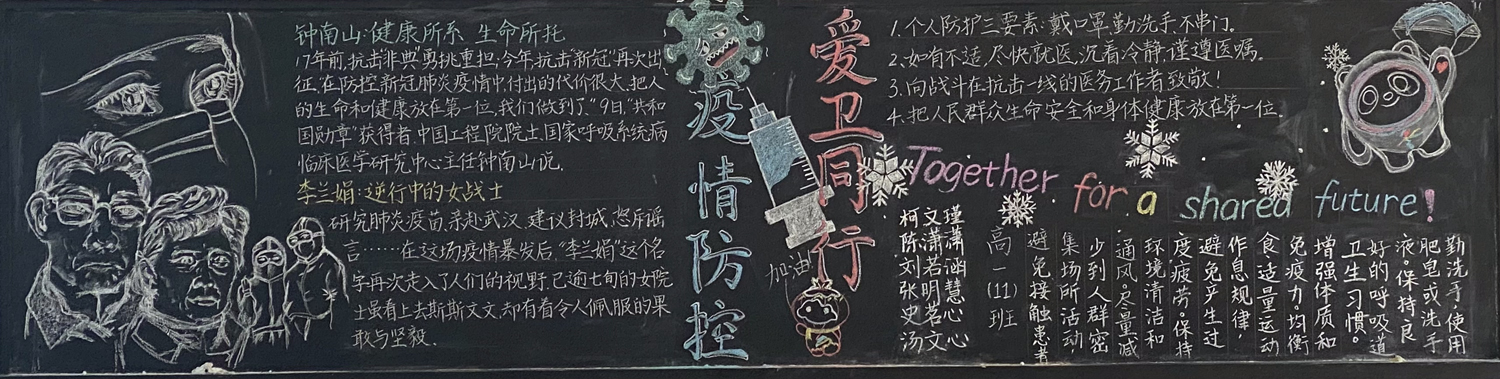 钟南山:健康所系 生命所托
17年前,抗击"非典"勇挑重担,今年,抗击新冠"再次出
征,在防控新冠肺炎疫情中付出的代价很大,把人
的生命和健康放在第一位,我们做到了"9日"共和
国勋章"获得者,中国工程院院士,国家呼吸系统病
临床医学研究中心主任钟南山说.
李兰娟:逆行中的女战士
研究肺炎疫苗,亲赴武汉,建议封城,怒斥谣
言……在这场疫情暴发后,"李兰娟"这个名
字再次走入了人们的视野,已逾七旬的女院
士虽看上去斯斯文文,却有着令人佩服的果
敢与坚毅.
疫情防控
爱卫同行
加油
1.个人防护三要素:戴口罩,勤洗手,不串门。
2.如有不适,尽快就医,沉着冷静,谨遵医嘱。
3.向战斗在抗击一线的医务工作者致敬!
4.把人民群众生命安全和身体健康放在第一位.
Together for a shared future!
勤洗手,使用
肥皂或洗手
液。保持良
好的呼吸道
卫生习惯。
增强体质和
免疫力,均衡
食,适量运动
作息规律,
避免产生过
度疲劳。保持
环境清洁和
通风。尽量减
少到人群密
集场所活动,
避免接触患者
高一(11)班
柯文瑾
陈潇潇
刘若涵
张明慧
史茗心
汤文心